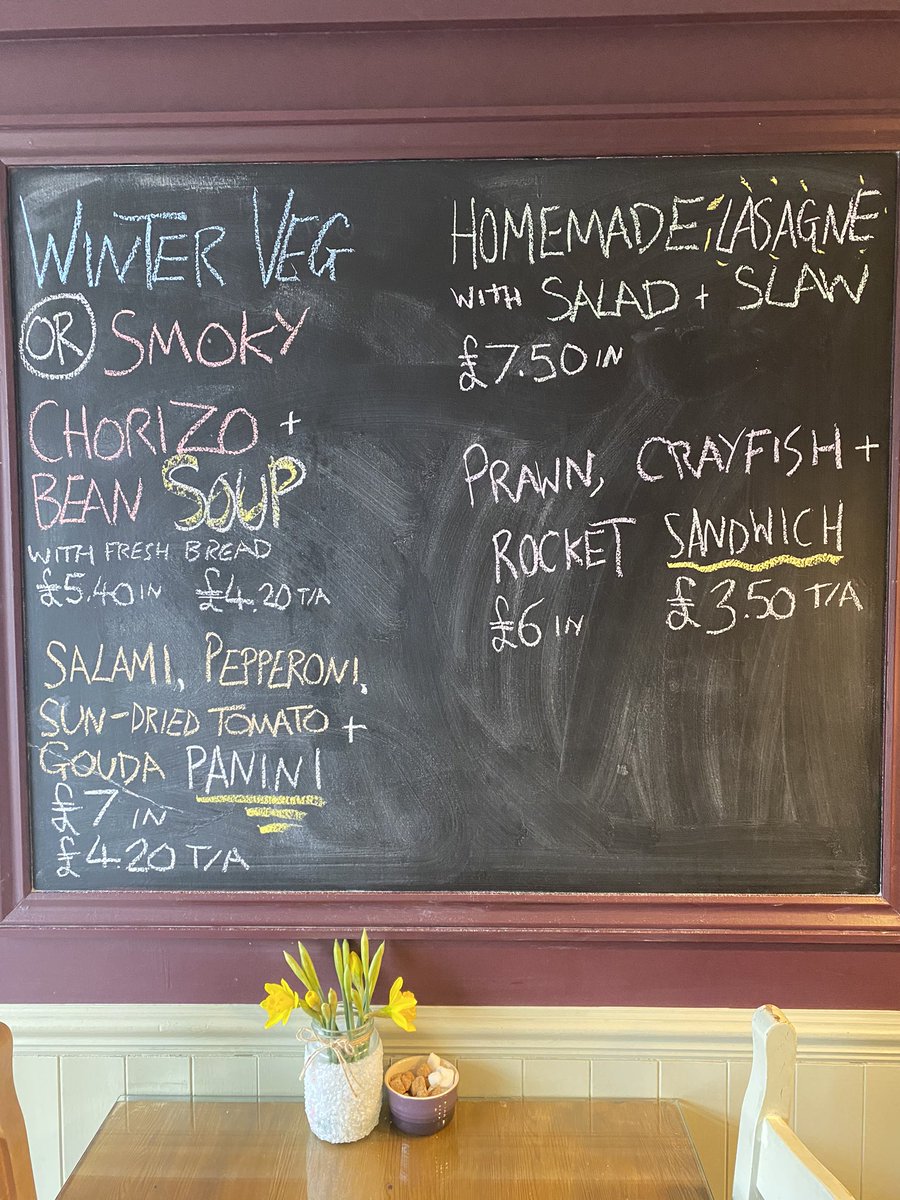 WINTER VEG
OR SMOKY
CHORIZO +
BEAN SOUP
WITH FRESH BREAD
£5.40 IN £4.20 T/A
SALAMI, PEPPERONI,
SUN-DRIED TOMATO +
GOUDA PANINI
£7 IN
£4.20 T/A
HOMEMADE LASAGNE
WITH SALAD + SLAW
£7.50 IN
PRAWN, CRAYFISH +
ROCKET SANDWICH
£6 IN £3.50 T/A